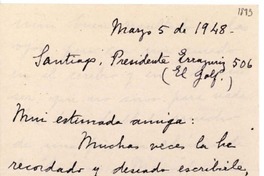 1893
Mayo 5 de 1948-
Santiago, Presidente Errazuriz 506
(El Golf.)
Mui estimada amiga:
Muchas veces la he
recordado y deseado escribirle,